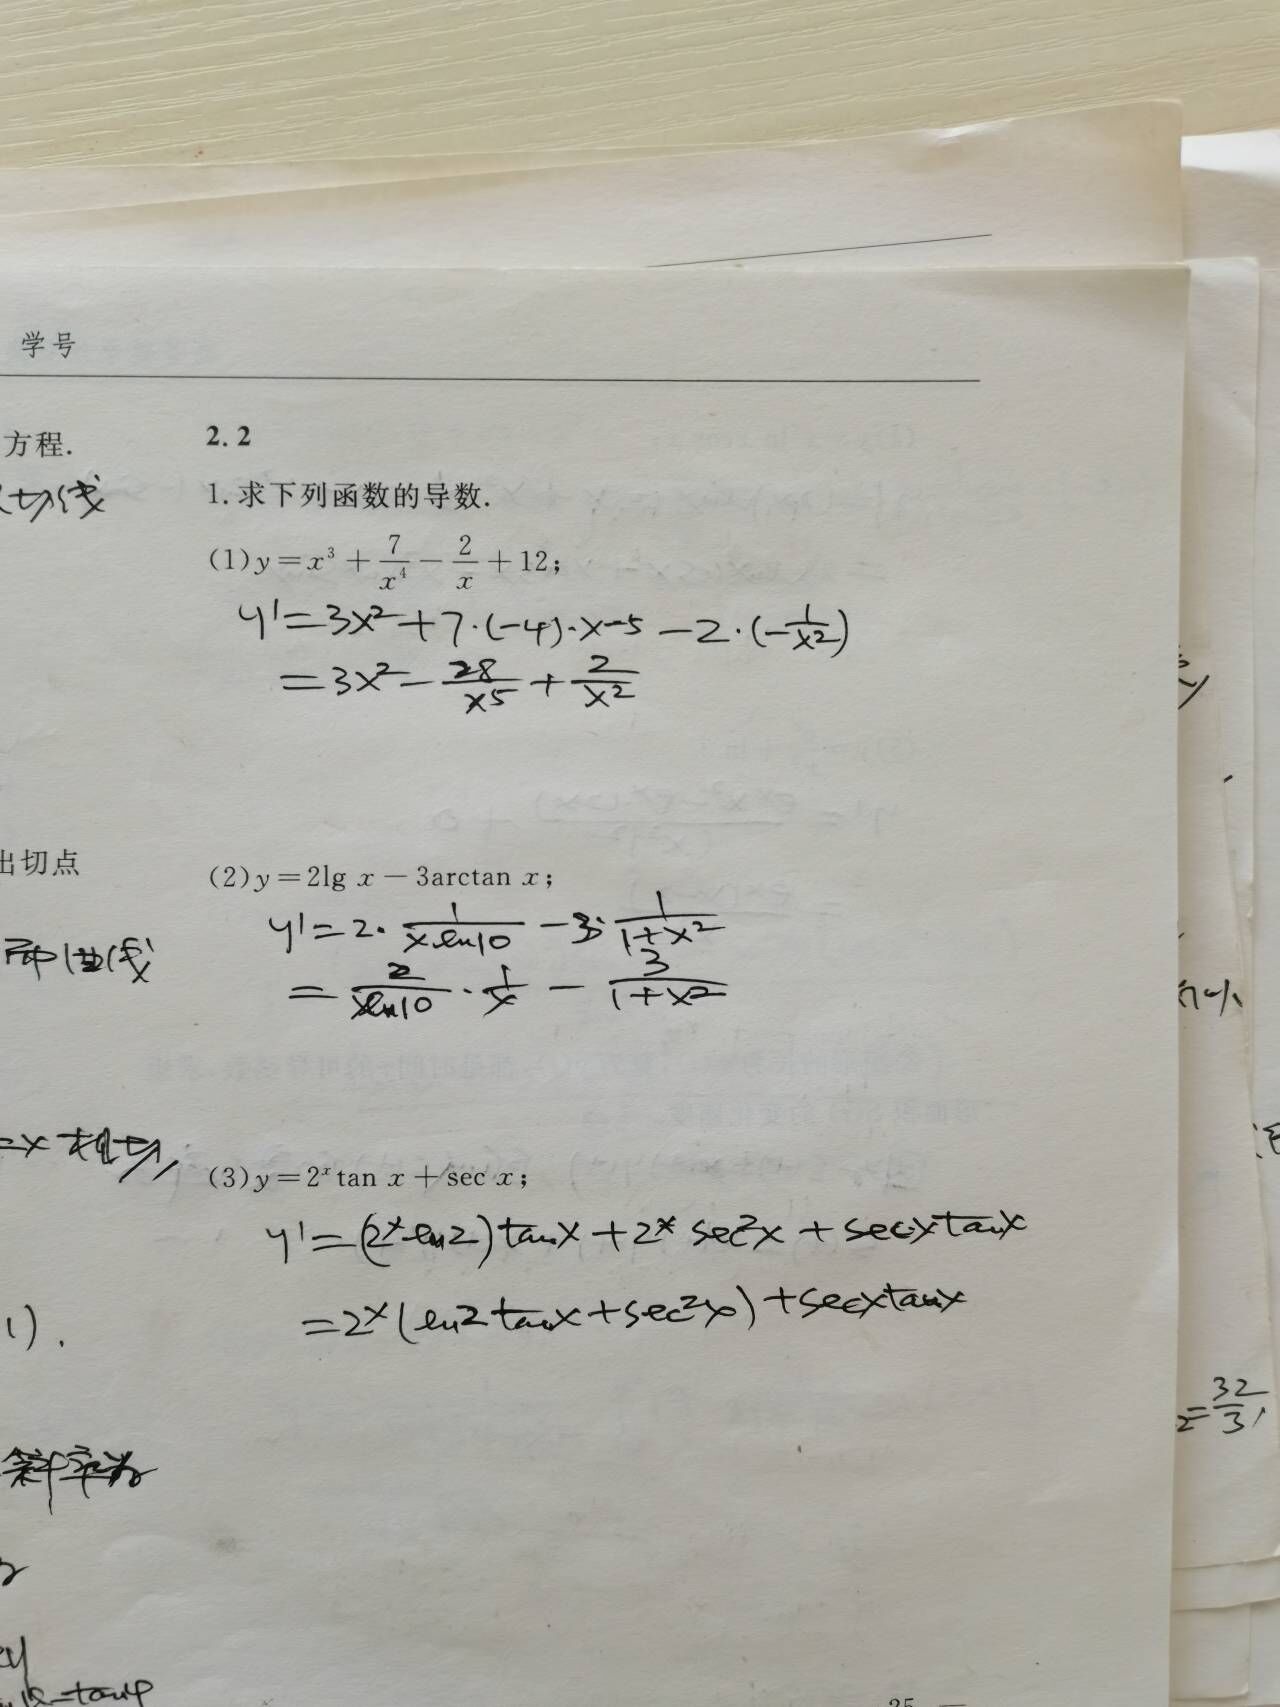 学号
方程.
切线
2.2
1.求下列函数的导数.
(1)y=x³+7/x⁴-2/x+12;
y'=3x²+7·(-4)·x-5-2·(-1/x²)
=3x²-28/x5+2/x²
出切点
(2)y=2lg x-3arctan x;
y'=2·1/xln10-3·1/1+x²
=2/ln10·1/x-3/1+x²
=x相切,
(3)y=2ˣtan x+sec x;
y'=(2ˣln2)tanx+2ˣsec²x+secxtanx
=2ˣ(ln2tanx+sec²x)+secxtanx
1).
2=32/3,
斜率为
=tanφ